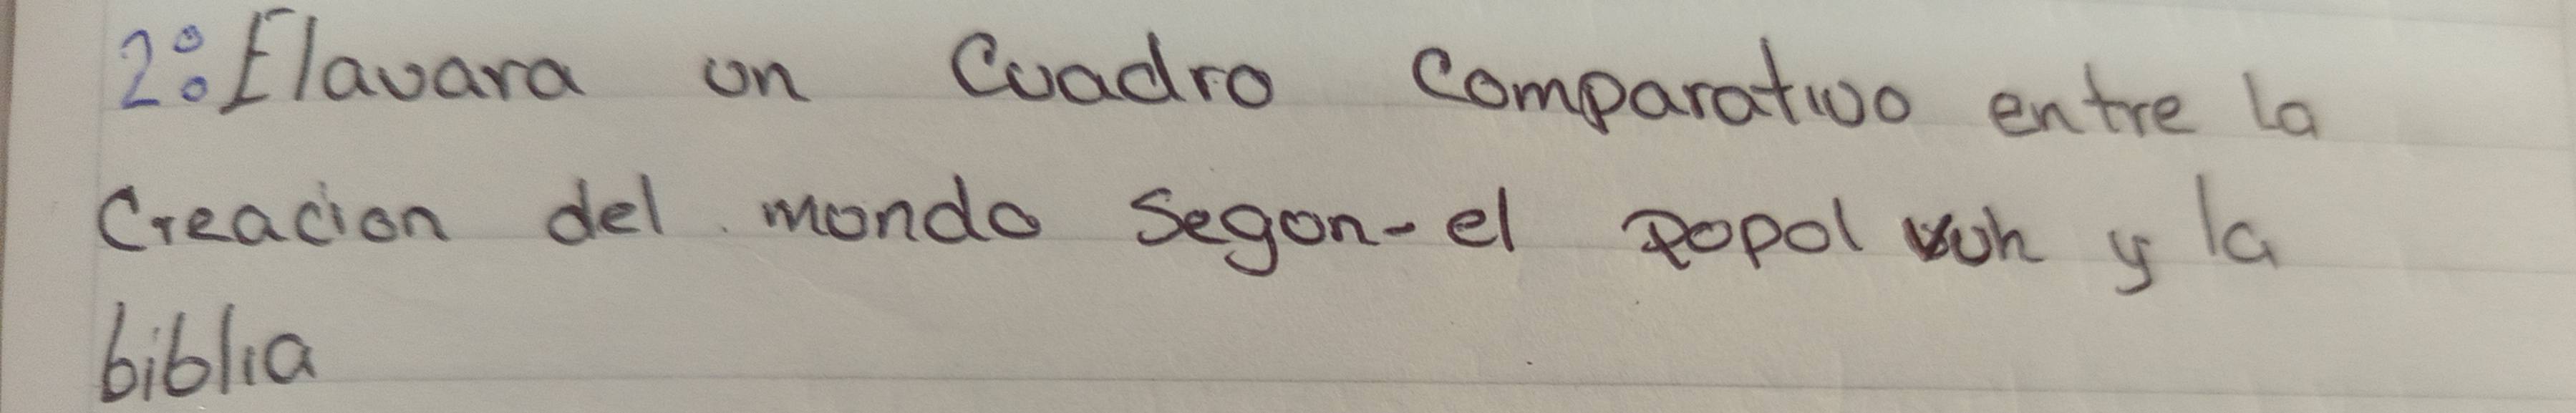 2: Elavara un Cuadro Comparativo entre la
Creacion del mondo Segon-el popol vuh y la
biblia